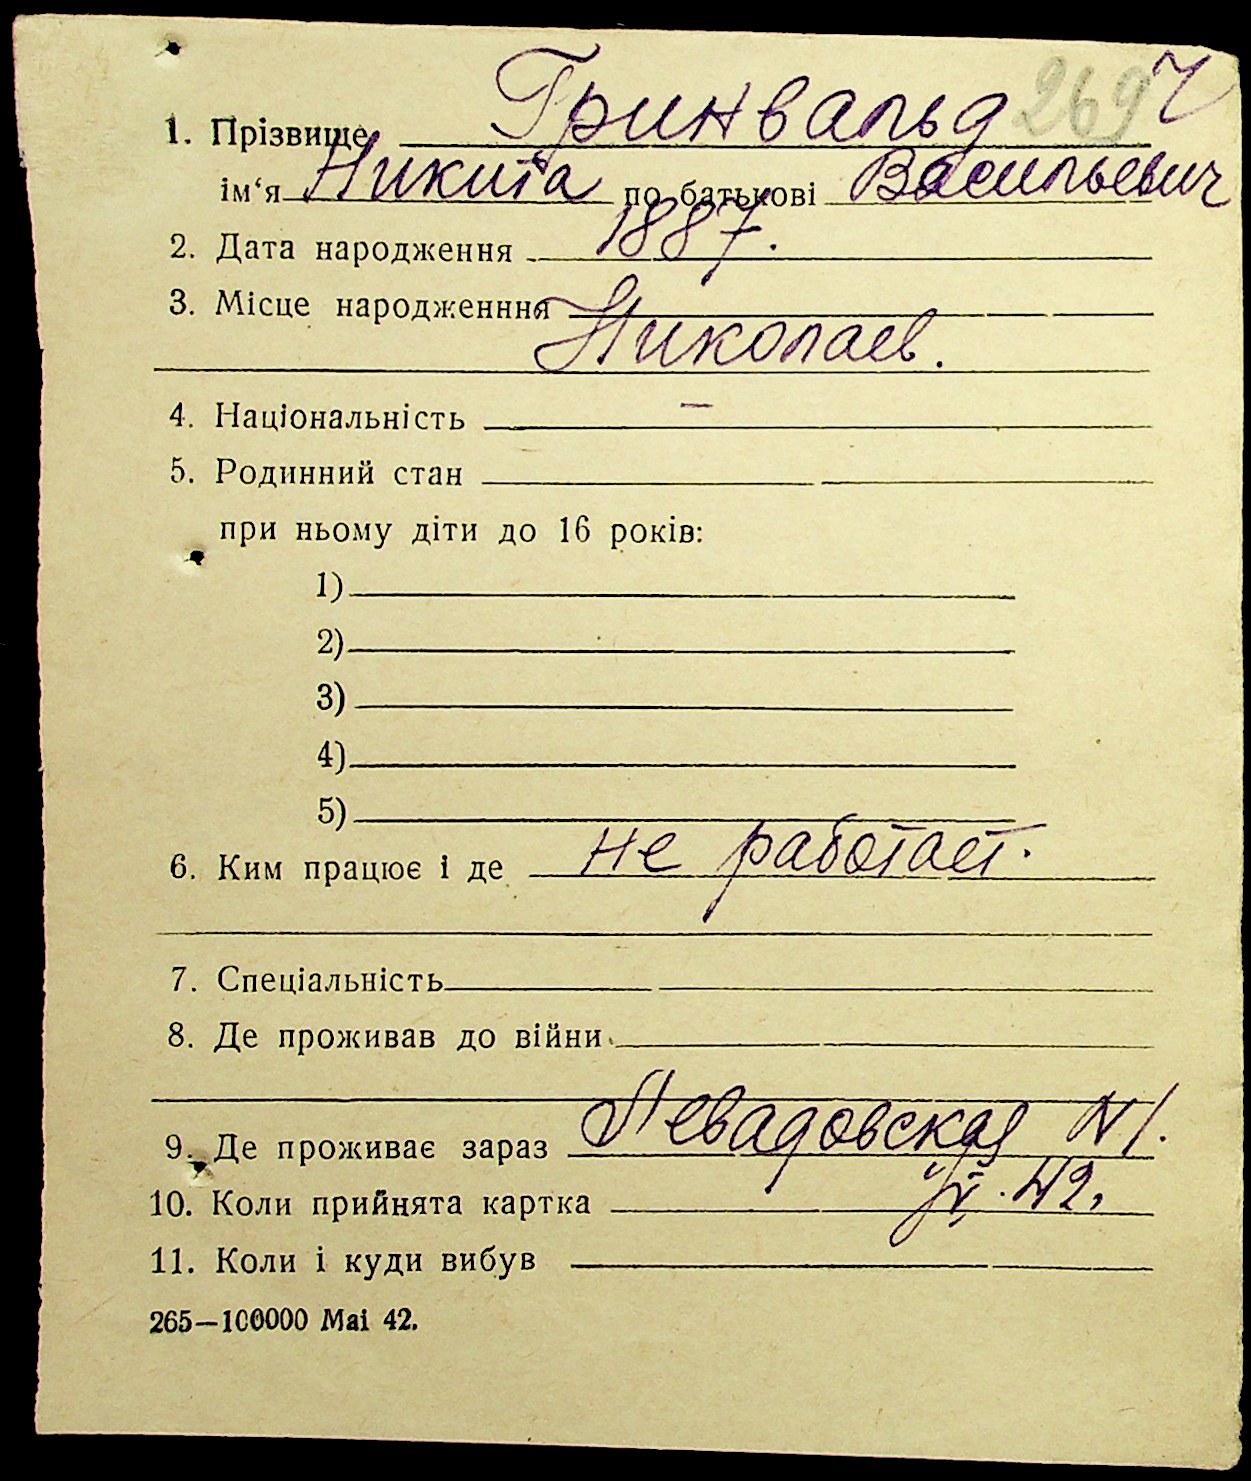 269 Ч
1. Прізвище Гринвальд
ім‘я Никита по батькові Васильевич
2. Дата народження 1887.
3. Місце народженння
Николаев.
4. Національність —
5. Родинний стан
при ньому діти до 16 років:
1)
2)
3)
4)
5)
6. Ким працює і де не работает.
7. Спеціальність
8. Де проживав до війни
9. Де проживає зараз Левадовская N 1.
10. Коли прийнята картка 42.
11. Коли і куди вибув
265—100000 Mai 42.